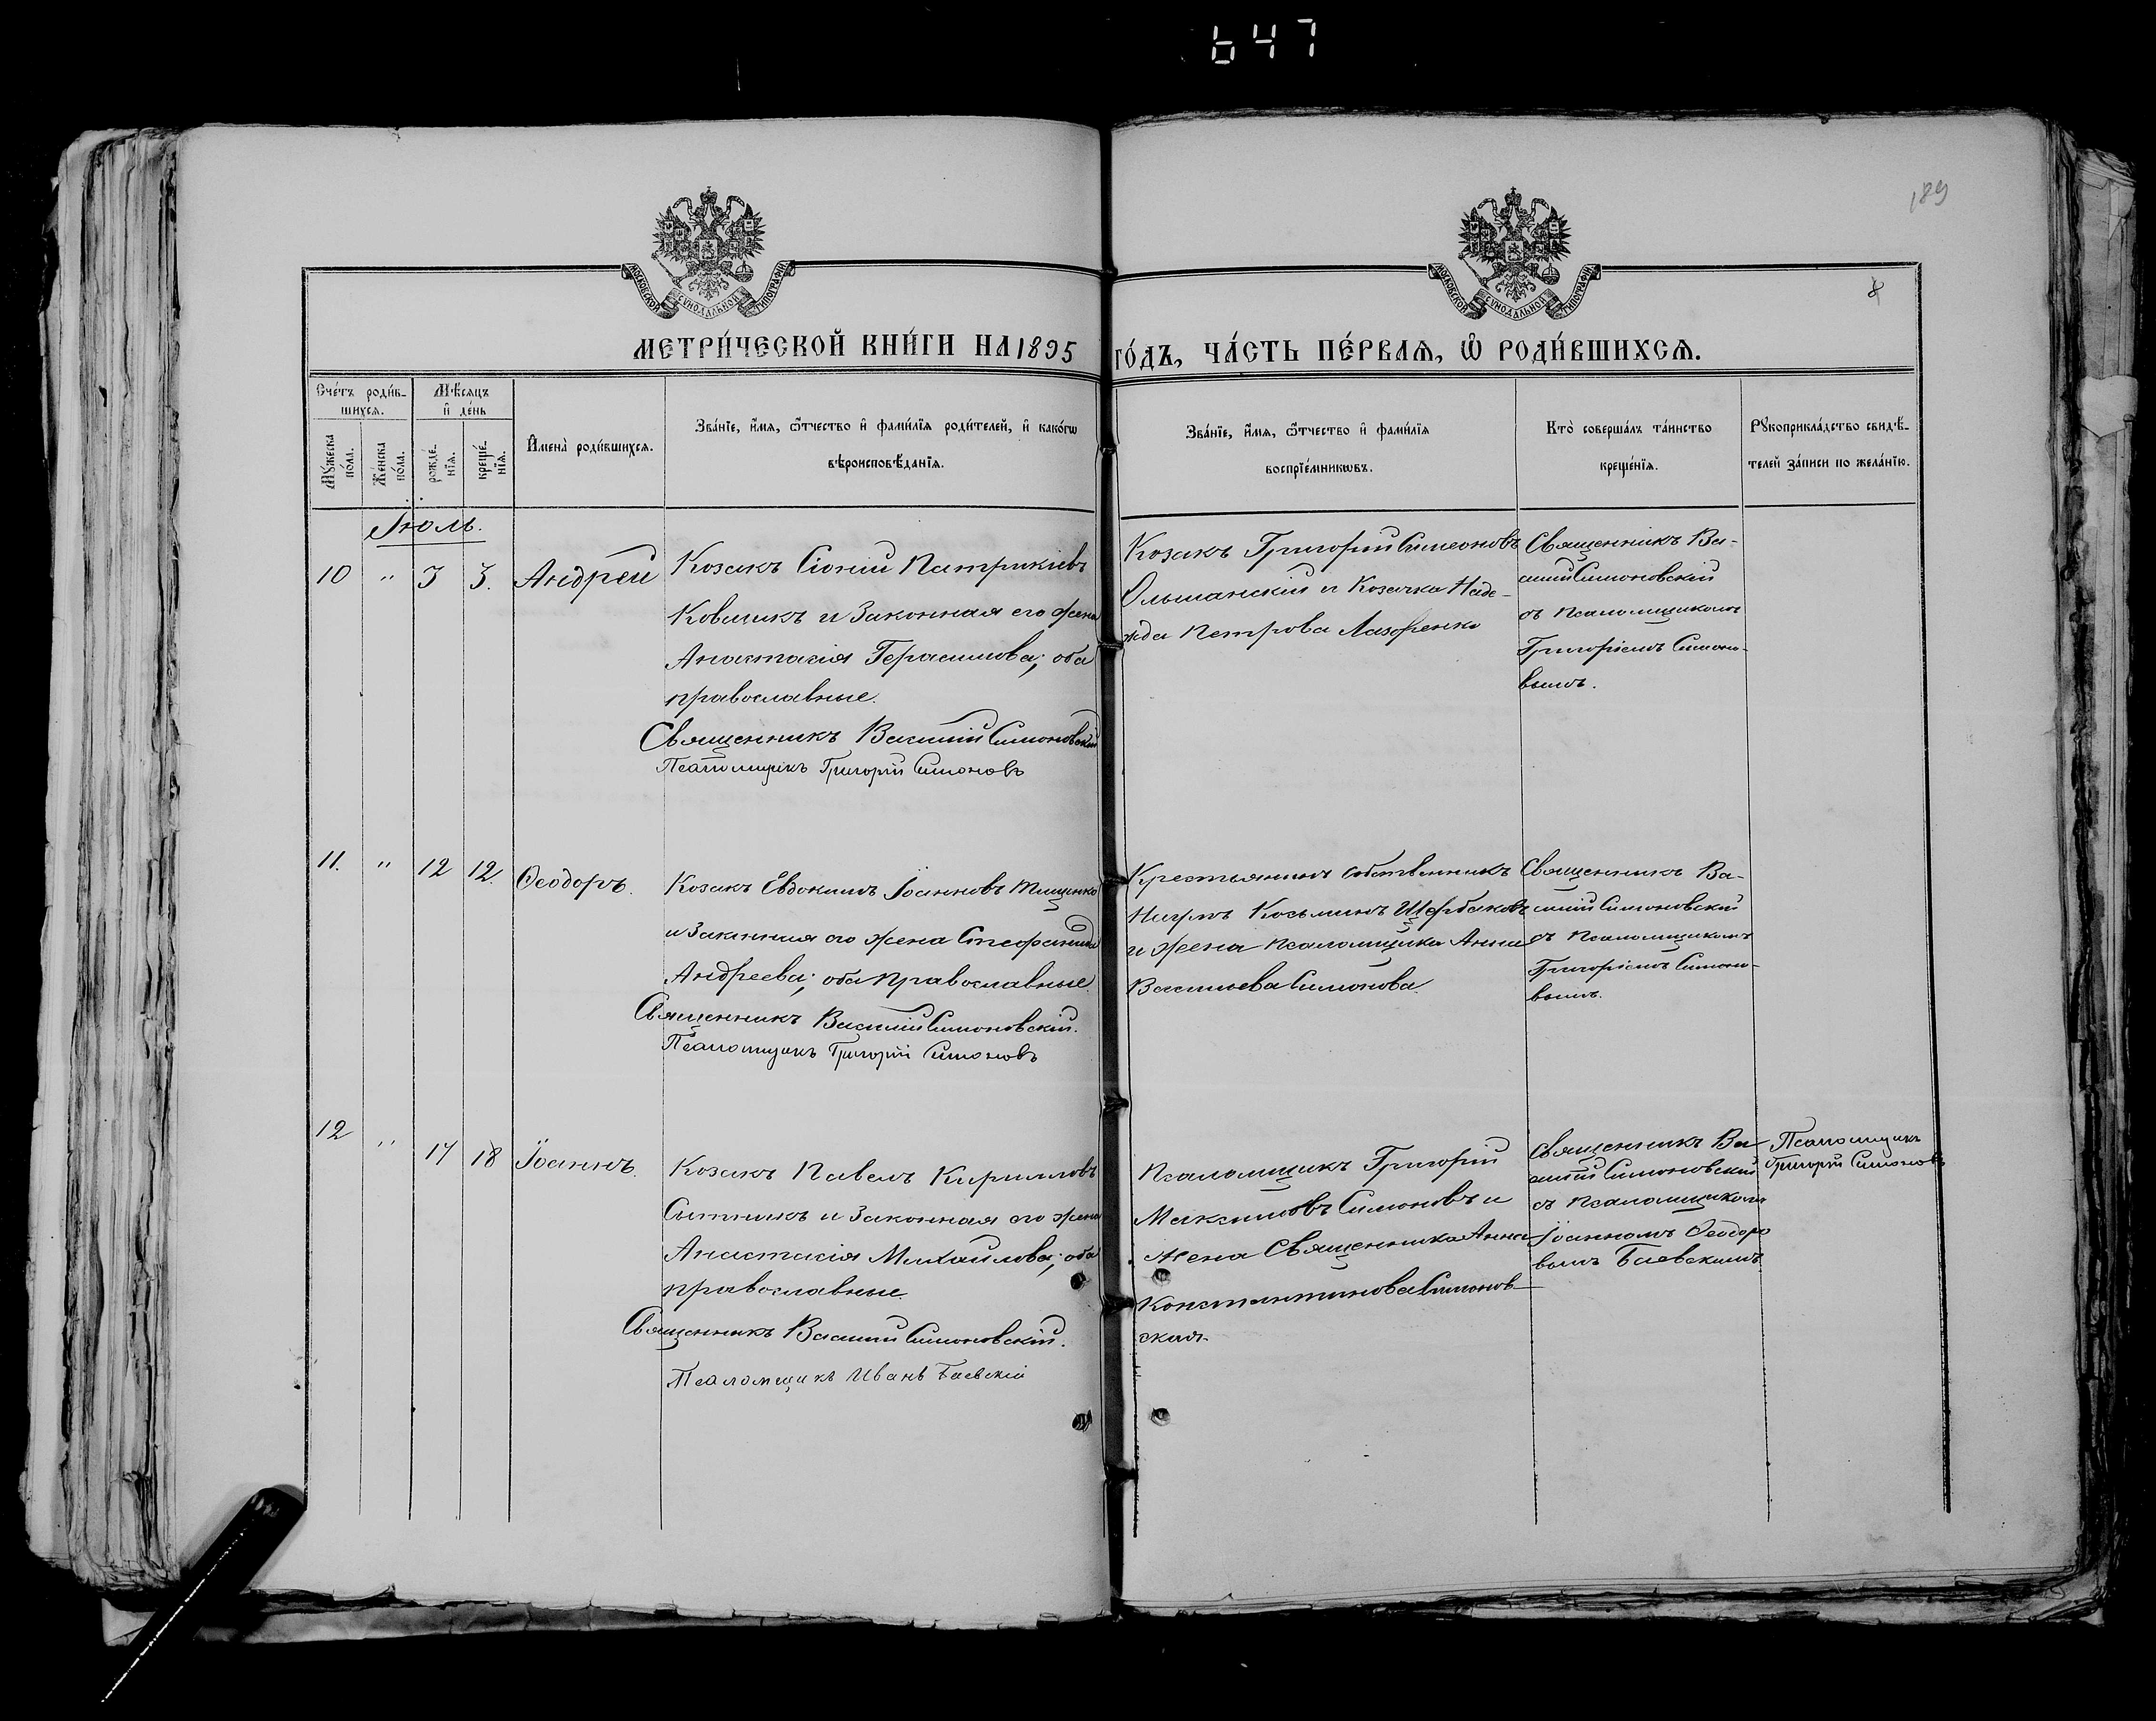 647
189
8
МОСКОВСКОЙ СѴНОДАЛЬНОЙ ТИПОГРАФІИ
МОСКОВСКОЙ СѴНОДАЛЬНОЙ ТИПОГРАФІИ
МЕТРИ́ЧЕСКОЙ КНИ́ГИ НА 1895 ГО́ДЪ, ЧА́СТЬ ПЕ́РВАѦ, Ѡ҆ РОДИ́ВШИХСѦ.
Сче́тъ роди́в-
шихсѧ.
Мѣ́сѧцъ
и҆ де́нь
Мꙋ́жеска
по́ла.
Же́нска
по́ла.
рожде́-
нїѧ.
креще́-
нїѧ.
И҆мена̀ роди́вшихсѧ.
Зва́нїе, и҆́мѧ, ѻ҆́тчество и҆ фами́лїѧ роди́телей, и҆ како́гѡ
вѣроисповѣ́данїѧ.
Зва́нїе, и҆́мѧ, ѻ҆́тчество и҆ фами́лїѧ
воспрїе́мникѡвъ.
Кто̀ соверша́лъ та́инство
креще́нїѧ.
Рꙋкоприкла́дство свидѣ́-
телей за́писи по жела́нїю.
Іюль.
10 " 3 3. Андрей
Козакъ Патрикіевъ
Ковшикъ и Законная его жена
Анастасія Герасимова; оба
православные.
Священникъ Василій Симоновскій
Псаломщикъ Григорій Симоновъ
Козакъ Григорій Симеоновъ
Ольшанскій и Козачка Наде-
жда Петрова Лазоренко
Священникъ Ва-
силій Симоновскій
съ псаломщикомъ
Григоріемъ Симоно-
вымъ.
11. " 12 12. Ѳеодоръ.
Козакъ Евдокимъ Іоанновъ Тищенко
и Законная его жена Стефанида
Андреева; оба православные.
Священникъ Василій Симоновскій.
Псаломщикъ Григорій Симоновъ
Крестьянинъ собственникъ
Наумъ Козьминъ Щербаковъ
и жена псаломщика Анна
Васильева Симонова
Священникъ Ва-
силій Симоновскій
съ псаломщикомъ
Григоріемъ Симоно-
вымъ.
12 " 17 18 Іоаннъ.
Козакъ Павелъ Кирилловъ
Сытникъ и Законная его жена
Анастасія Михайлова; оба
православные.
Священникъ Василій Симоновскій.
Псаломщикъ Иванъ Баевскій
Псаломщикъ Григорій
Максимовъ Симоновъ и
жена Священника Анна
Константинова Симонов-
ская.
Священникъ Ва-
силій Симоновскій
съ псаломщикомъ
Іоанномъ Ѳеодоро
вымъ Баевскимъ
Псаломщикъ
Григорій Симоновъ